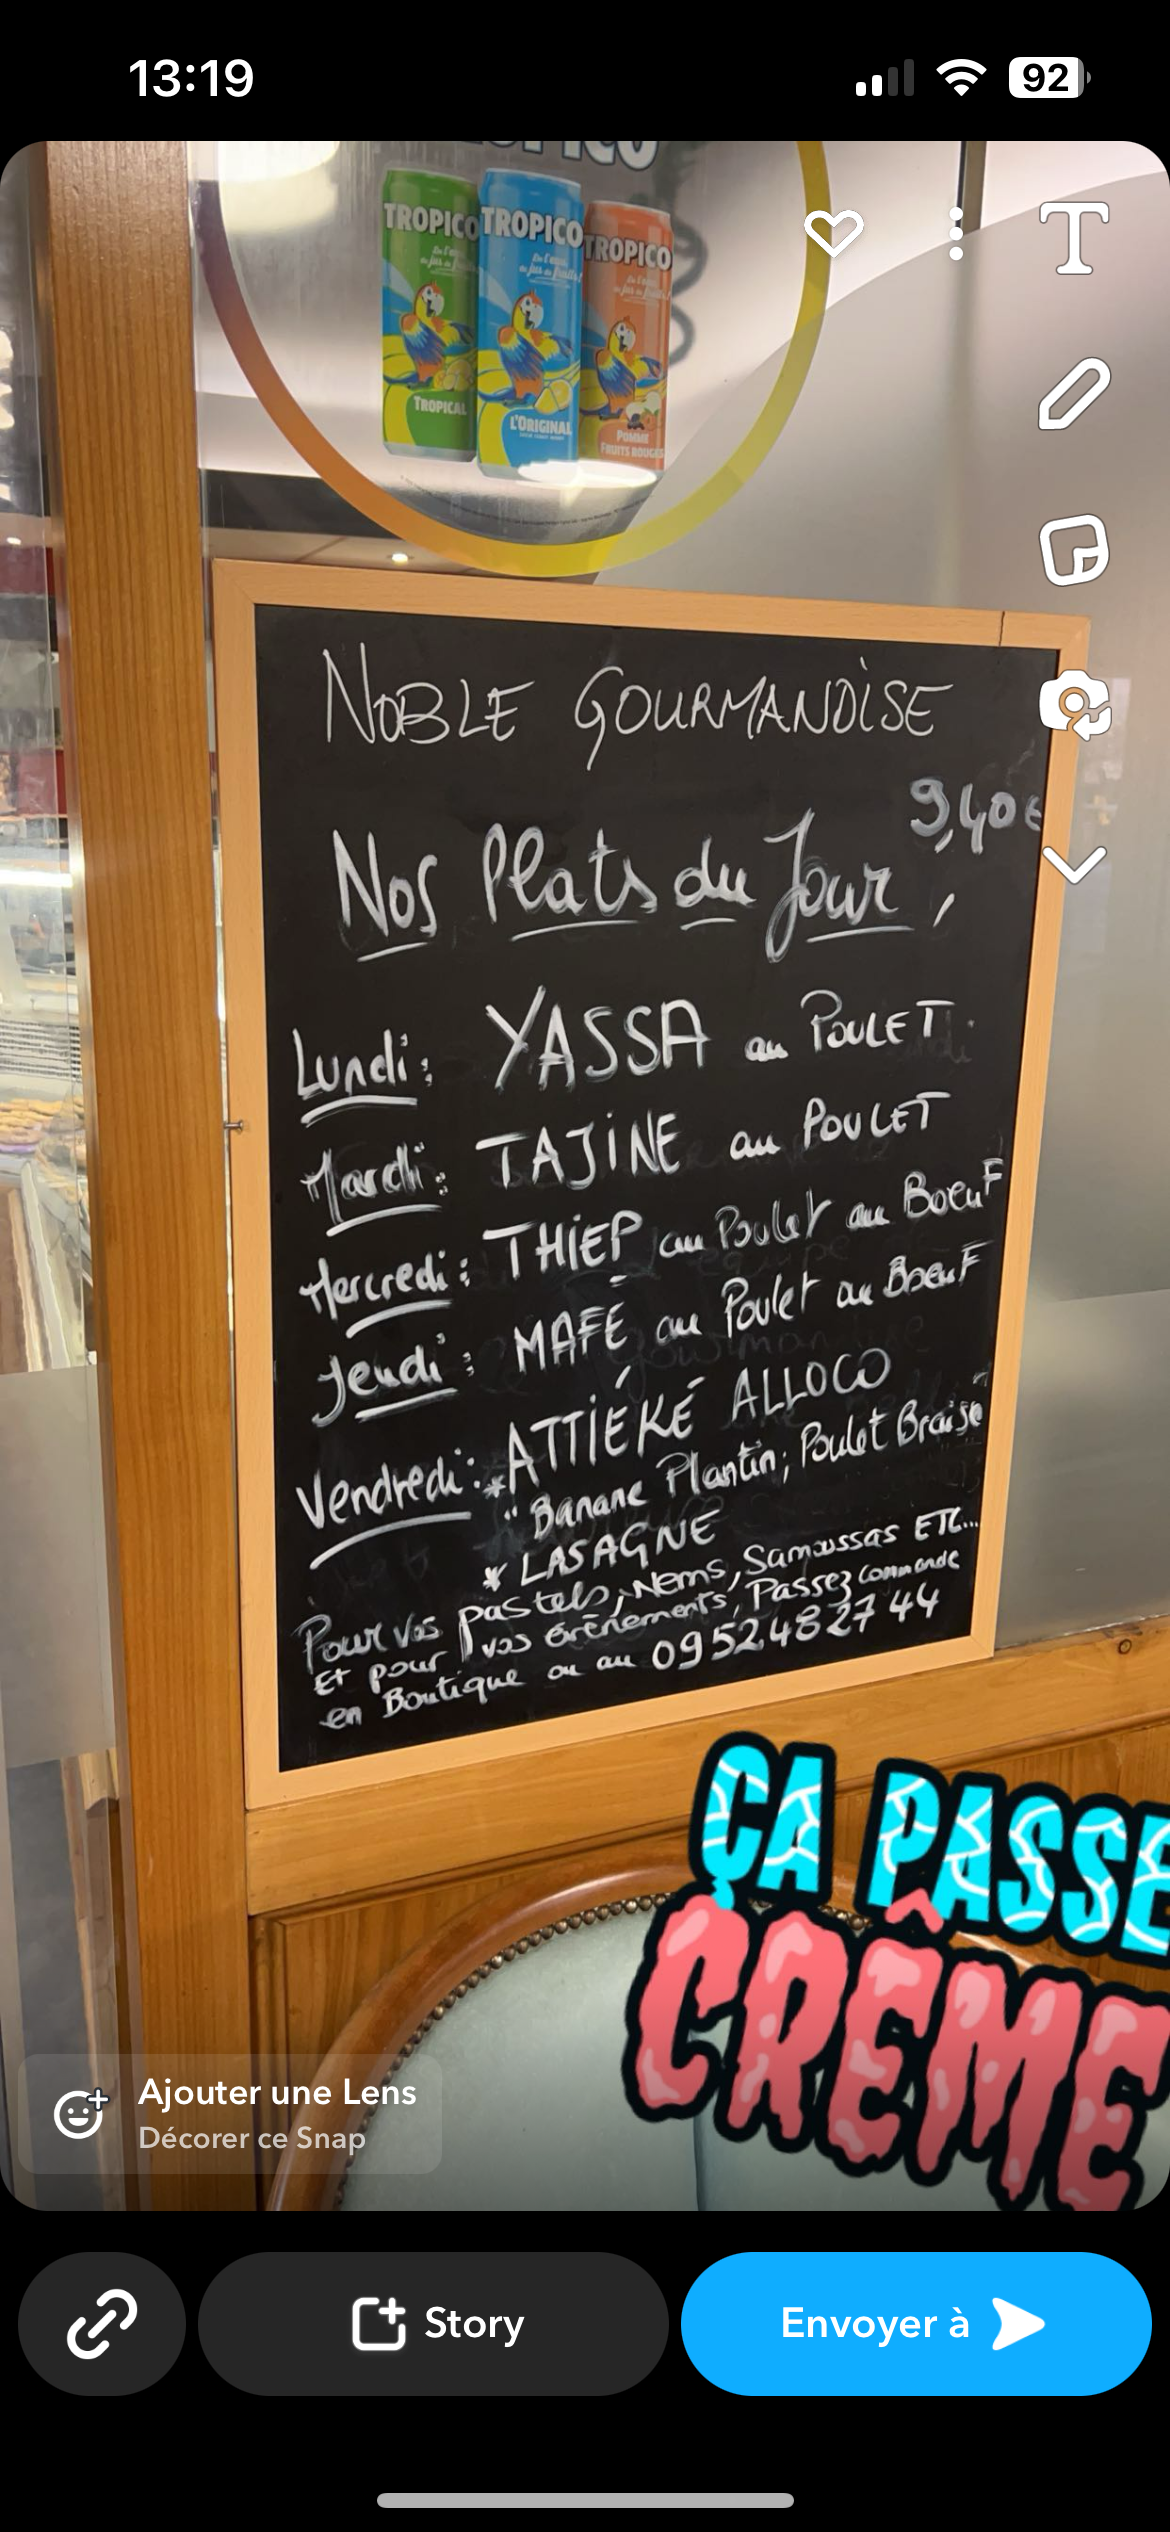 13:19
92
TROPICO
TROPICO
TROPICO
TROPICAL
L'ORIGINAL
POMME
FRUITS ROUGES
NOBLE GOURMANDISE
9,40€
Nos Plats du Jour,
Lundi: YASSA au POULET.
Mardi: TAJINE au POULET
Mercredi: THIEP au Poulet au BoeuF
Jeudi: MAFÉ au Poulet au BoeuF
Vendredi: *ATTIÉKÉ ALLOCO
" Banane Plantin; Poulet Braisé
* LASAGNE
Pour vos pastels, Nems, Samoussas ETC...
Et pour vos évènements, Passez commande
en Boutique ou au 09 52 48 27 44
ÇA PASSE
CRÊME
Ajouter une Lens
Décorer ce Snap
Story
Envoyer à